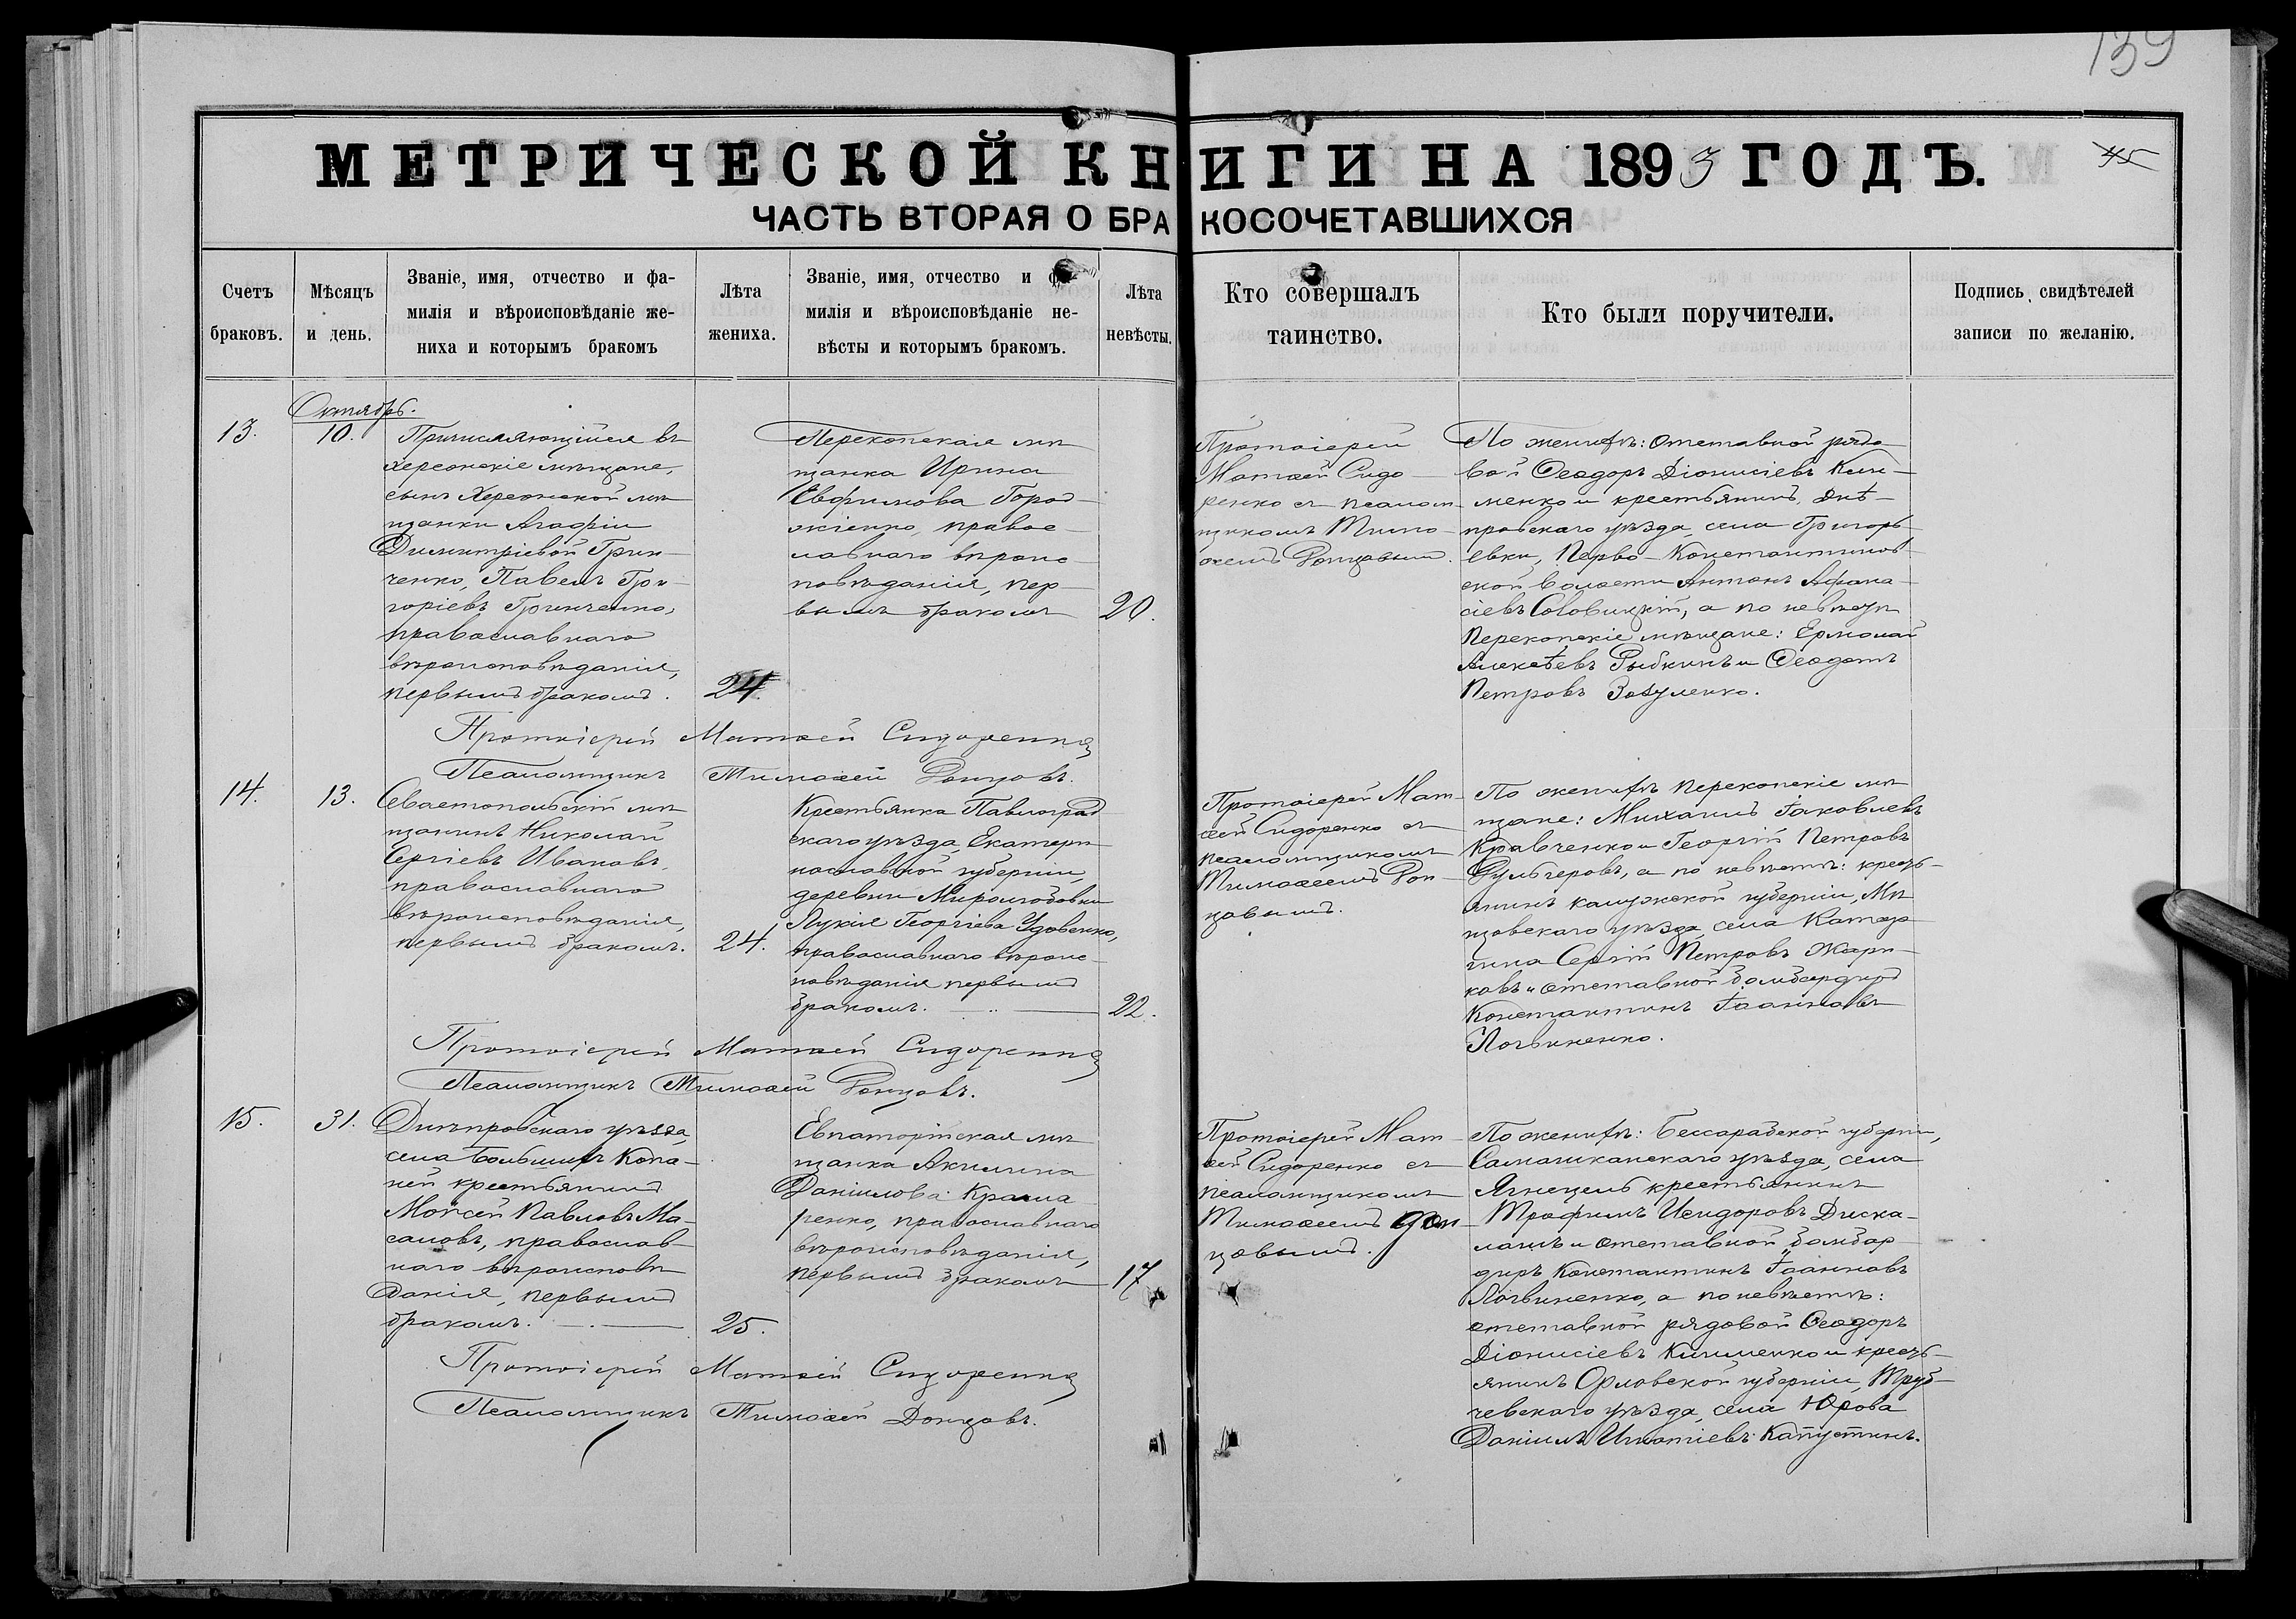 139
МЕТРИЧЕСКОЙ КНИГИ НА 1893 ГОДЪ.
45
ЧАСТЬ ВТОРАЯ О БРАКОСОЧЕТАВШИХСЯ
Счетъ
браковъ.
Мѣсяцъ
и день.
Званіе, имя, отчество и фа-
милія и вѣроисповѣданіе же-
ниха и которымъ бракомъ
Лѣта
жениха.
Званіе, имя, отчество и фа-
милія и вѣроисповѣданіе не-
вѣсты и которымъ бракомъ.
Лѣта
невѣсты.
Кто совершалъ
таинство.
Кто были поручители.
Подпись свидѣтелей
записи по желанію.
Октябрь.
13.
10.
Причисляющійся въ
херсонскіе мѣщане,
сынъ Херсонской мѣ
щанки Агафіи
Димитріевой Грин-
ченко, Павелъ Гри-
горіевъ Гринченко,
православнаго
вѣроисповѣданія,
первымъ бракомъ.
24.
Перекопская мѣ
щанка Ирина
Евфимова Город-
жіенко, правос-
лавнаго вѣроис-
повѣданія, пер-
вымъ бракомъ
20.
Протоіерей
Матѳей Сидо-
ренко съ псалом-
щикомъ Тимо-
ѳеемъ Донцовымъ.
По женихѣ: отставной рядо-
вой Ѳеодоръ Діонисіевъ Кли-
менко и крестьянинъ Днѣ-
провскаго уѣзда, села Григорь-
евки, Перво-Константинов-
ской волости Антонъ Афана-
сіевъ Соловицкій, а по невѣстѣ
Перекопскіе мѣщане: Ермолай
Алексѣевъ Рыбкинъ и Ѳеодотъ
Петровъ Зозуленко.
Протоіерей Матѳей Сидоренко
Псаломщикъ Тимоѳей Донцовъ.
14.
13.
Севастопольскій мѣ
щанинъ Николай
Сергіевъ Ивановъ,
православнаго
вѣроисповѣданія,
первымъ бракомъ.
24.
Крестьянка Павлоград
скаго уѣзда, Екатери
нославской губерніи,
деревни Миролюбовки
Лукія Георгіева Удовенко,
православнаго вѣроис-
повѣданія первымъ
бракомъ.
22.
Протоіерей Мат-
ѳей Сидоренко съ
псаломщикомъ
Тимоѳеемъ Дон-
цовымъ.
По женихѣ Перекопскіе мѣ
щане: Михаилъ Іаковлевъ
Кравченко и Георгій Петровъ
Бульчеровъ, а по невѣстѣ: кресть-
янинъ калужской губерніи, Мѣ
щовскаго уѣзда, села
Сергій Петровъ Жари-
ковъ и отставной бомбардиръ
Константинъ Іоанновъ
Логвиненко.
Протоіерей Матѳей Сидоренко
Псаломщикъ Тимоѳей Донцовъ.
15.
31.
Днѣпровскаго уѣзда,
села Большихъ Копа-
ней крестьянинъ
Моѵсей Павловъ Ма-
саловъ, православ-
наго вѣроисповѣ
данія, первымъ
бракомъ.
25.
Евпаторійская мѣ
щанка Акилина
Даніилова Крама
ренко, православнаго
вѣроисповѣданія,
первымъ бракомъ
17
Протоіерей Мат-
ѳей Сидоренко съ
псаломщикомъ
Тимоѳеемъ Дон-
цовымъ.
По женихѣ: Бессарабской губерніи,
уѣзда, села
крестьянинъ
Трофимъ Исидоровъ Диска-
ланъ и отставной бомбар-
диръ Константинъ Іоанновъ
Логвиненко, а по невѣстѣ:
отставной рядовой Ѳеодоръ
Діонисіевъ Клименко и кресть-
янинъ Орловской губерніи, Труб-
чевскаго уѣзда, села Юрова
Даніилъ Игнатіевъ Капустинъ.
Протоіерей Матѳей Сидоренко
Псаломщикъ Тимоѳей Донцовъ.